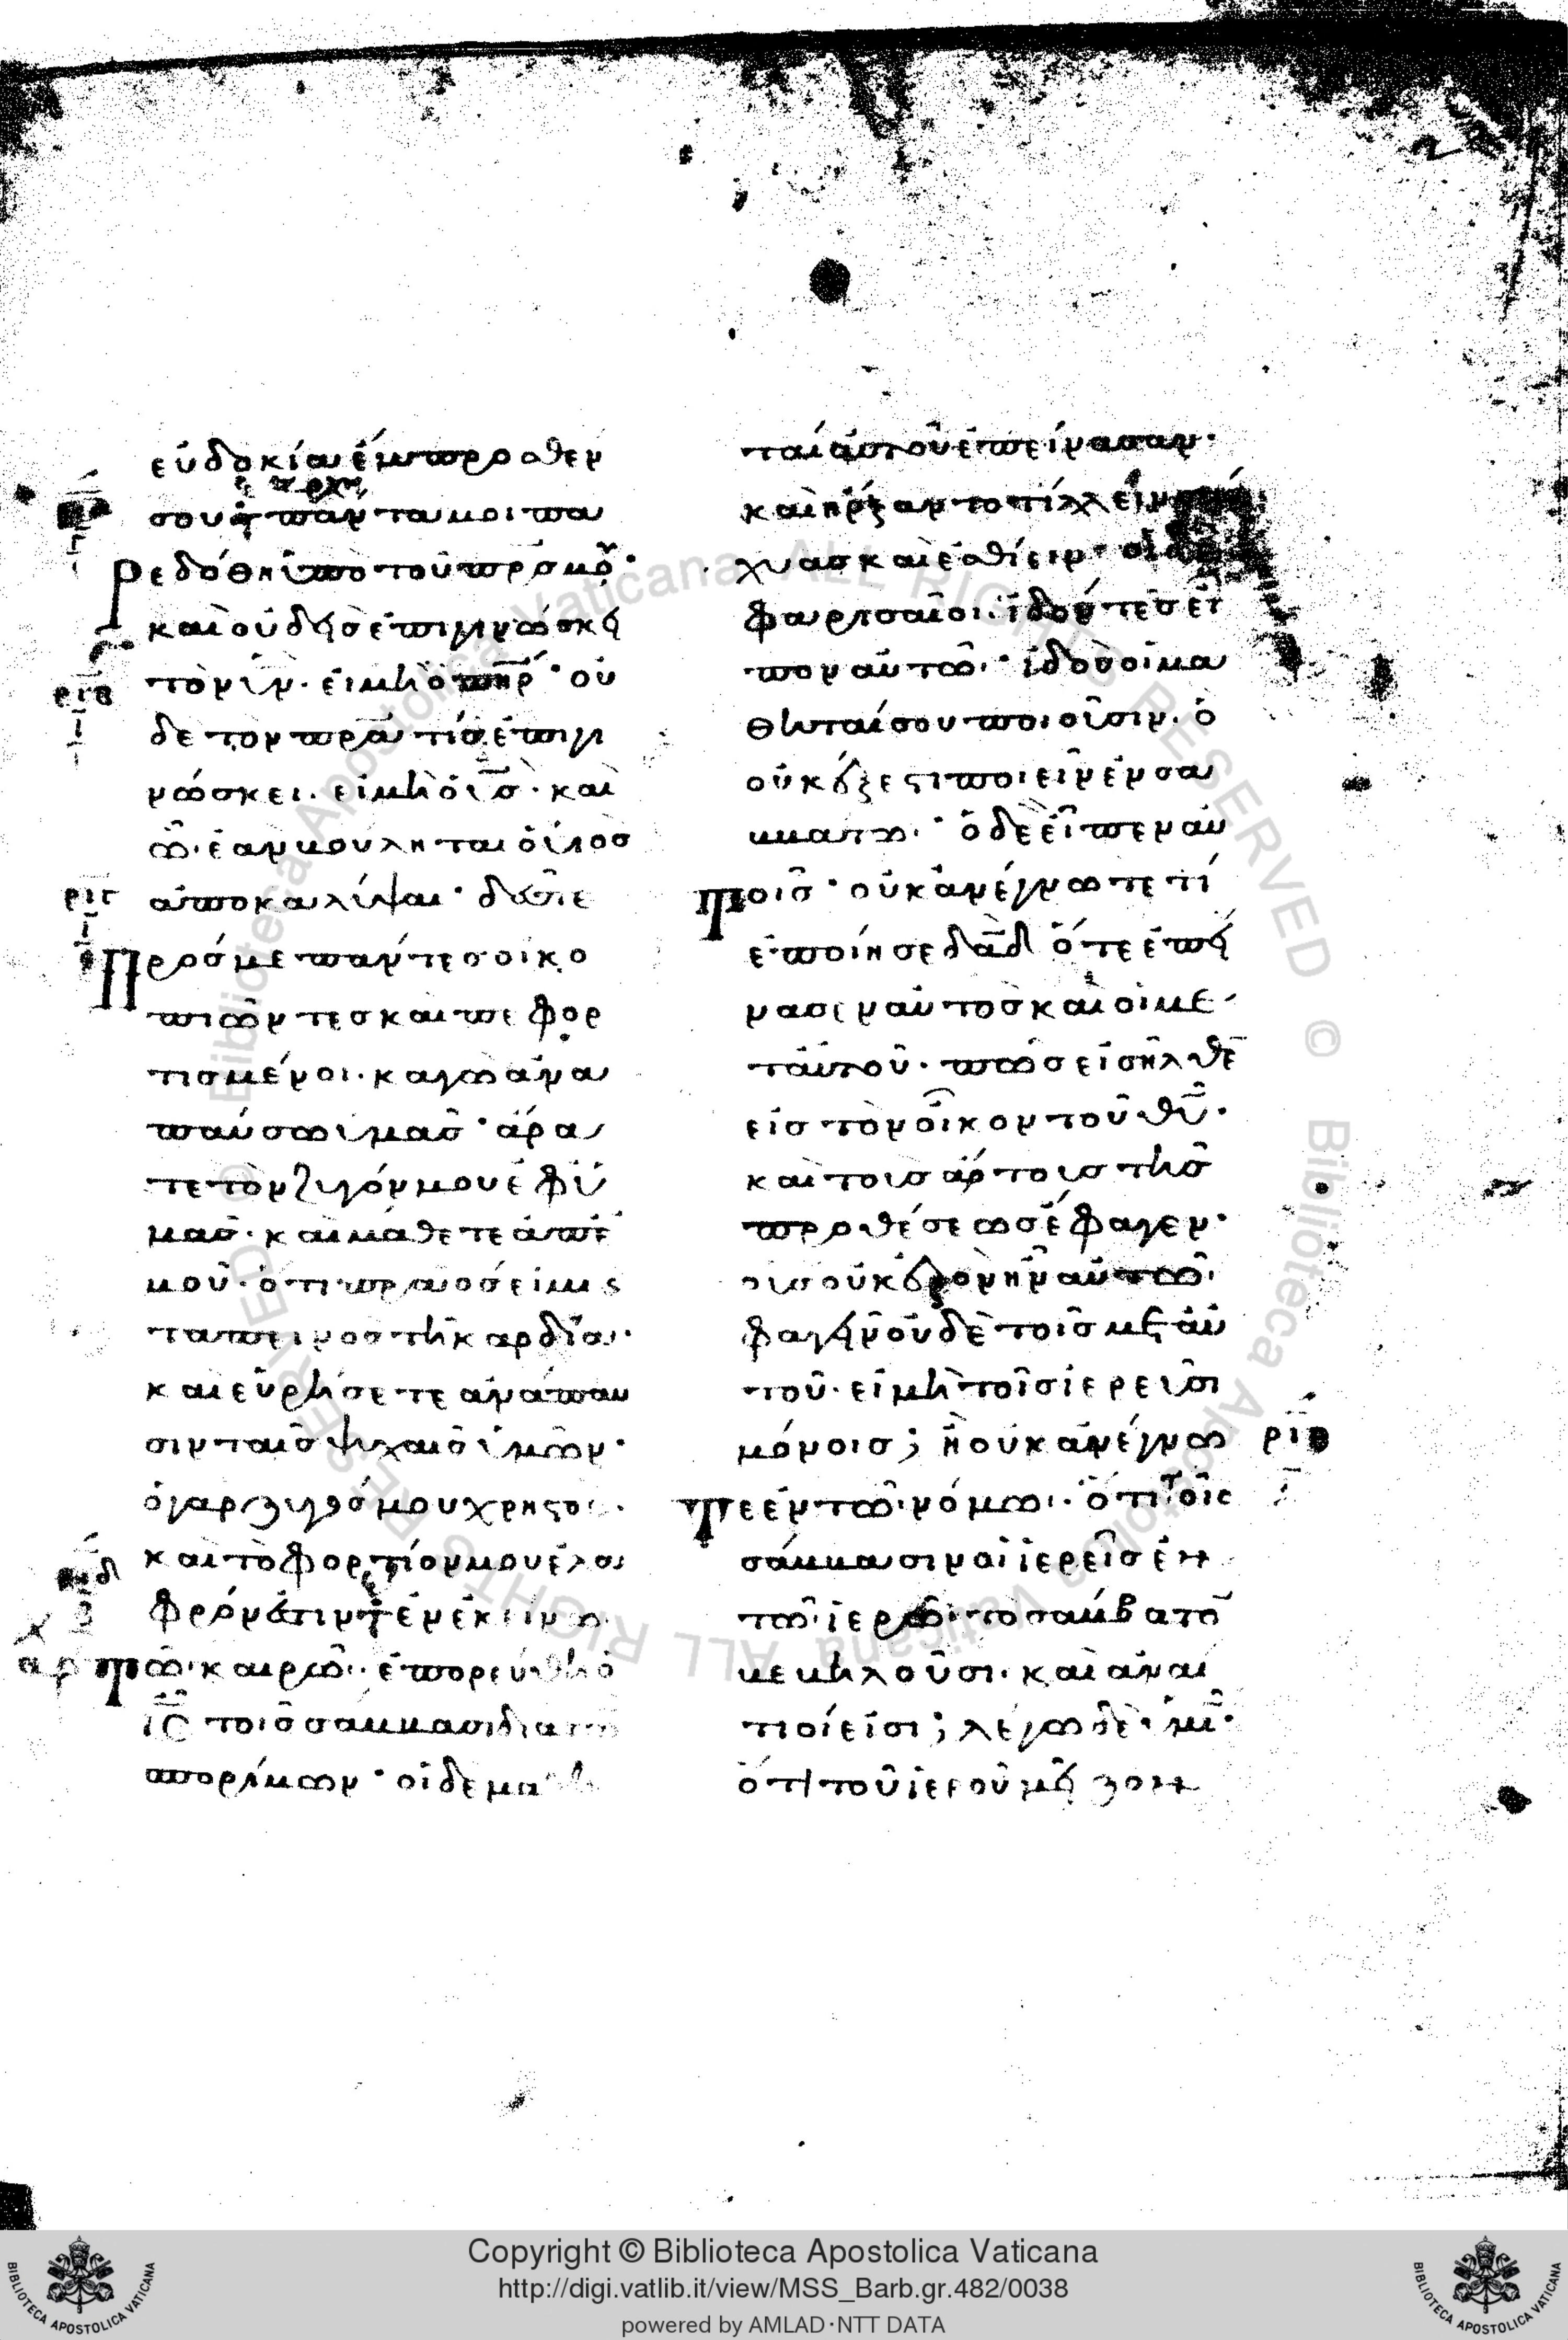 εὐδοκία ἔμπροσθεν
ἀρχη
σου πάντα μοι πα
ρεδόθη ὑπὸ τοῦ πρσ μου·
καὶ οὐδεὶς ἐπιγινώσκει
τὸν υν· εἰ μὴ ὁ πηρ· οὐ
ριβ
δε τον πρα τίς ἐπιγι
νώσκει. εἰ μὴ ὁ υσ· καὶ
ῶ· ἐὰν βούληται ὁ υἱὸσ
ριγ
ἀποκαλύψαι· δεῦτε
Πρόσ με πάντεσ οἱ κο
πιῶντεσ καὶ πεφορ
τισμένοι. καγω ἀνα
παύσω ὑμᾶσ· άρα
τε τὸν ζυγόν μου ἐφ ὑ
μᾶσ· καὶ μάθετε ἀπ ἐ
μοῦ· ὅτι πραοσ εἰμι ϛ
ταπεινοσ τῆ καρδία·
καὶ εὑρήσετε ἀνάπαυ
σιν ταῖσ ψυχαισ ὑμῶν·
ὁ γαρ ζυγόσ μου χρηϛοσ·
καὶ τὸ φορτίον μου ἐλα
φρόν ἐϛιν ἐν ἐκείνω
τῶ καιρῶ· ἐπορεύθη ὁ
ισ τοῖσ σάββασι δια τῶν
σπορίμων· οἱ δε μαθη
ταὶ αὐτοῦ ἐπείνασαν·
καὶ ἤρξαντο τίλλειν
χυασ καὶ ἐσθίειν· οἱ δὲ
φαρισαῖοι. ἰδόντεσ εἶ
πον αὐτῶ· ἰδοὺ οἱ μα
θηταί σου ποιοῦσιν. ὁ
οὐκ ἔξεϛι ποιεῖν ἐν σα
ββάτω· ὁ δε εἶπεν αὐ
τοῖσ· οὐκ ἀνέγνωτε τί
ἐποίησε δαδ ὅτε ἐπεί
νασεν αὐτὸσ καὶ οἱ με
τ αὐτοῦ. πῶσ εἰσῆλθε
εἰσ τὸν οἶκον τοῦ θυ·
καὶ τοὺσ άρτουσ τῆσ
προθέσεωσ έφαγεν·
οὓσ οὐκ ἐξὸν ἦν αὐτῶ
φαγεῖν οὐδὲ τοῖσ μετ αὐ
τοῦ· εἰ μὴ τοῖσ ἱερεῦσι
μόνοισ; ἢ οὐκ ἀνέγνω
ριδ
τε ἐν τῶ νόμω. ὅτι τοῖσ
σάββασιν οἱ ἱερεῖσ ἐν
τῶ ἱερῶ· τὸ σάββατον
βεβηλοῦσι. καὶ ἀναί
τιοί εἰσι; λέγω δὲ ὑμῖν·
ὅτι τοῦ ἱεροῦ μεῖζον
Copyright © Biblioteca Apostolica Vaticana
http://digi.vatlib.it/view/MSS_Barb.gr.482/0038
powered by AMLAD·NTT DATA